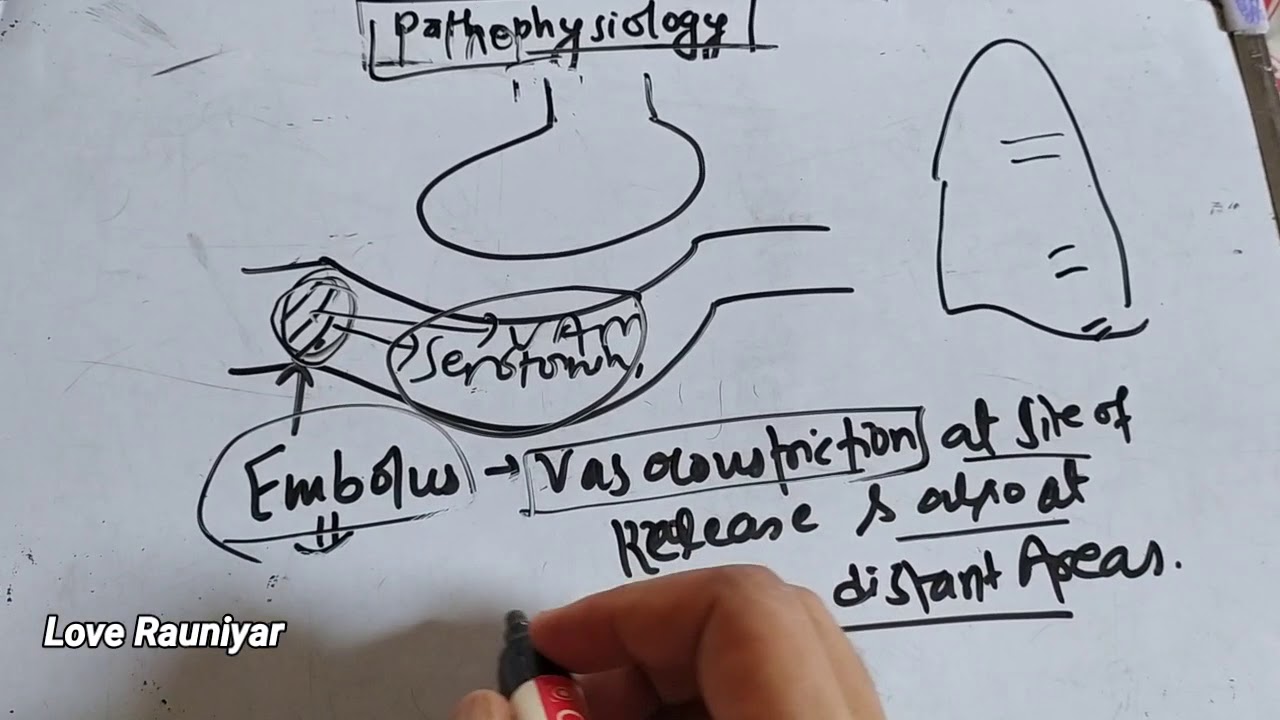 Pathophysiology
VAM
Serotonin,
Embolus → Vasoconstriction at site of
Release & also at
distant Areas.
Love Rauniyar